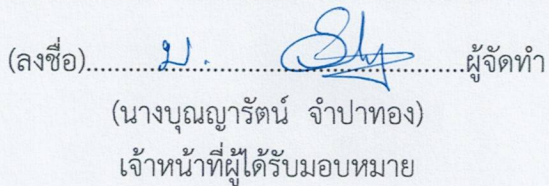 (ลงชื่อ)......ป. ......................ผู้จัดทำ
(นางบุณญารัตน์ จำปาทอง)
เจ้าหน้าที่ผู้ได้รับมอบหมาย